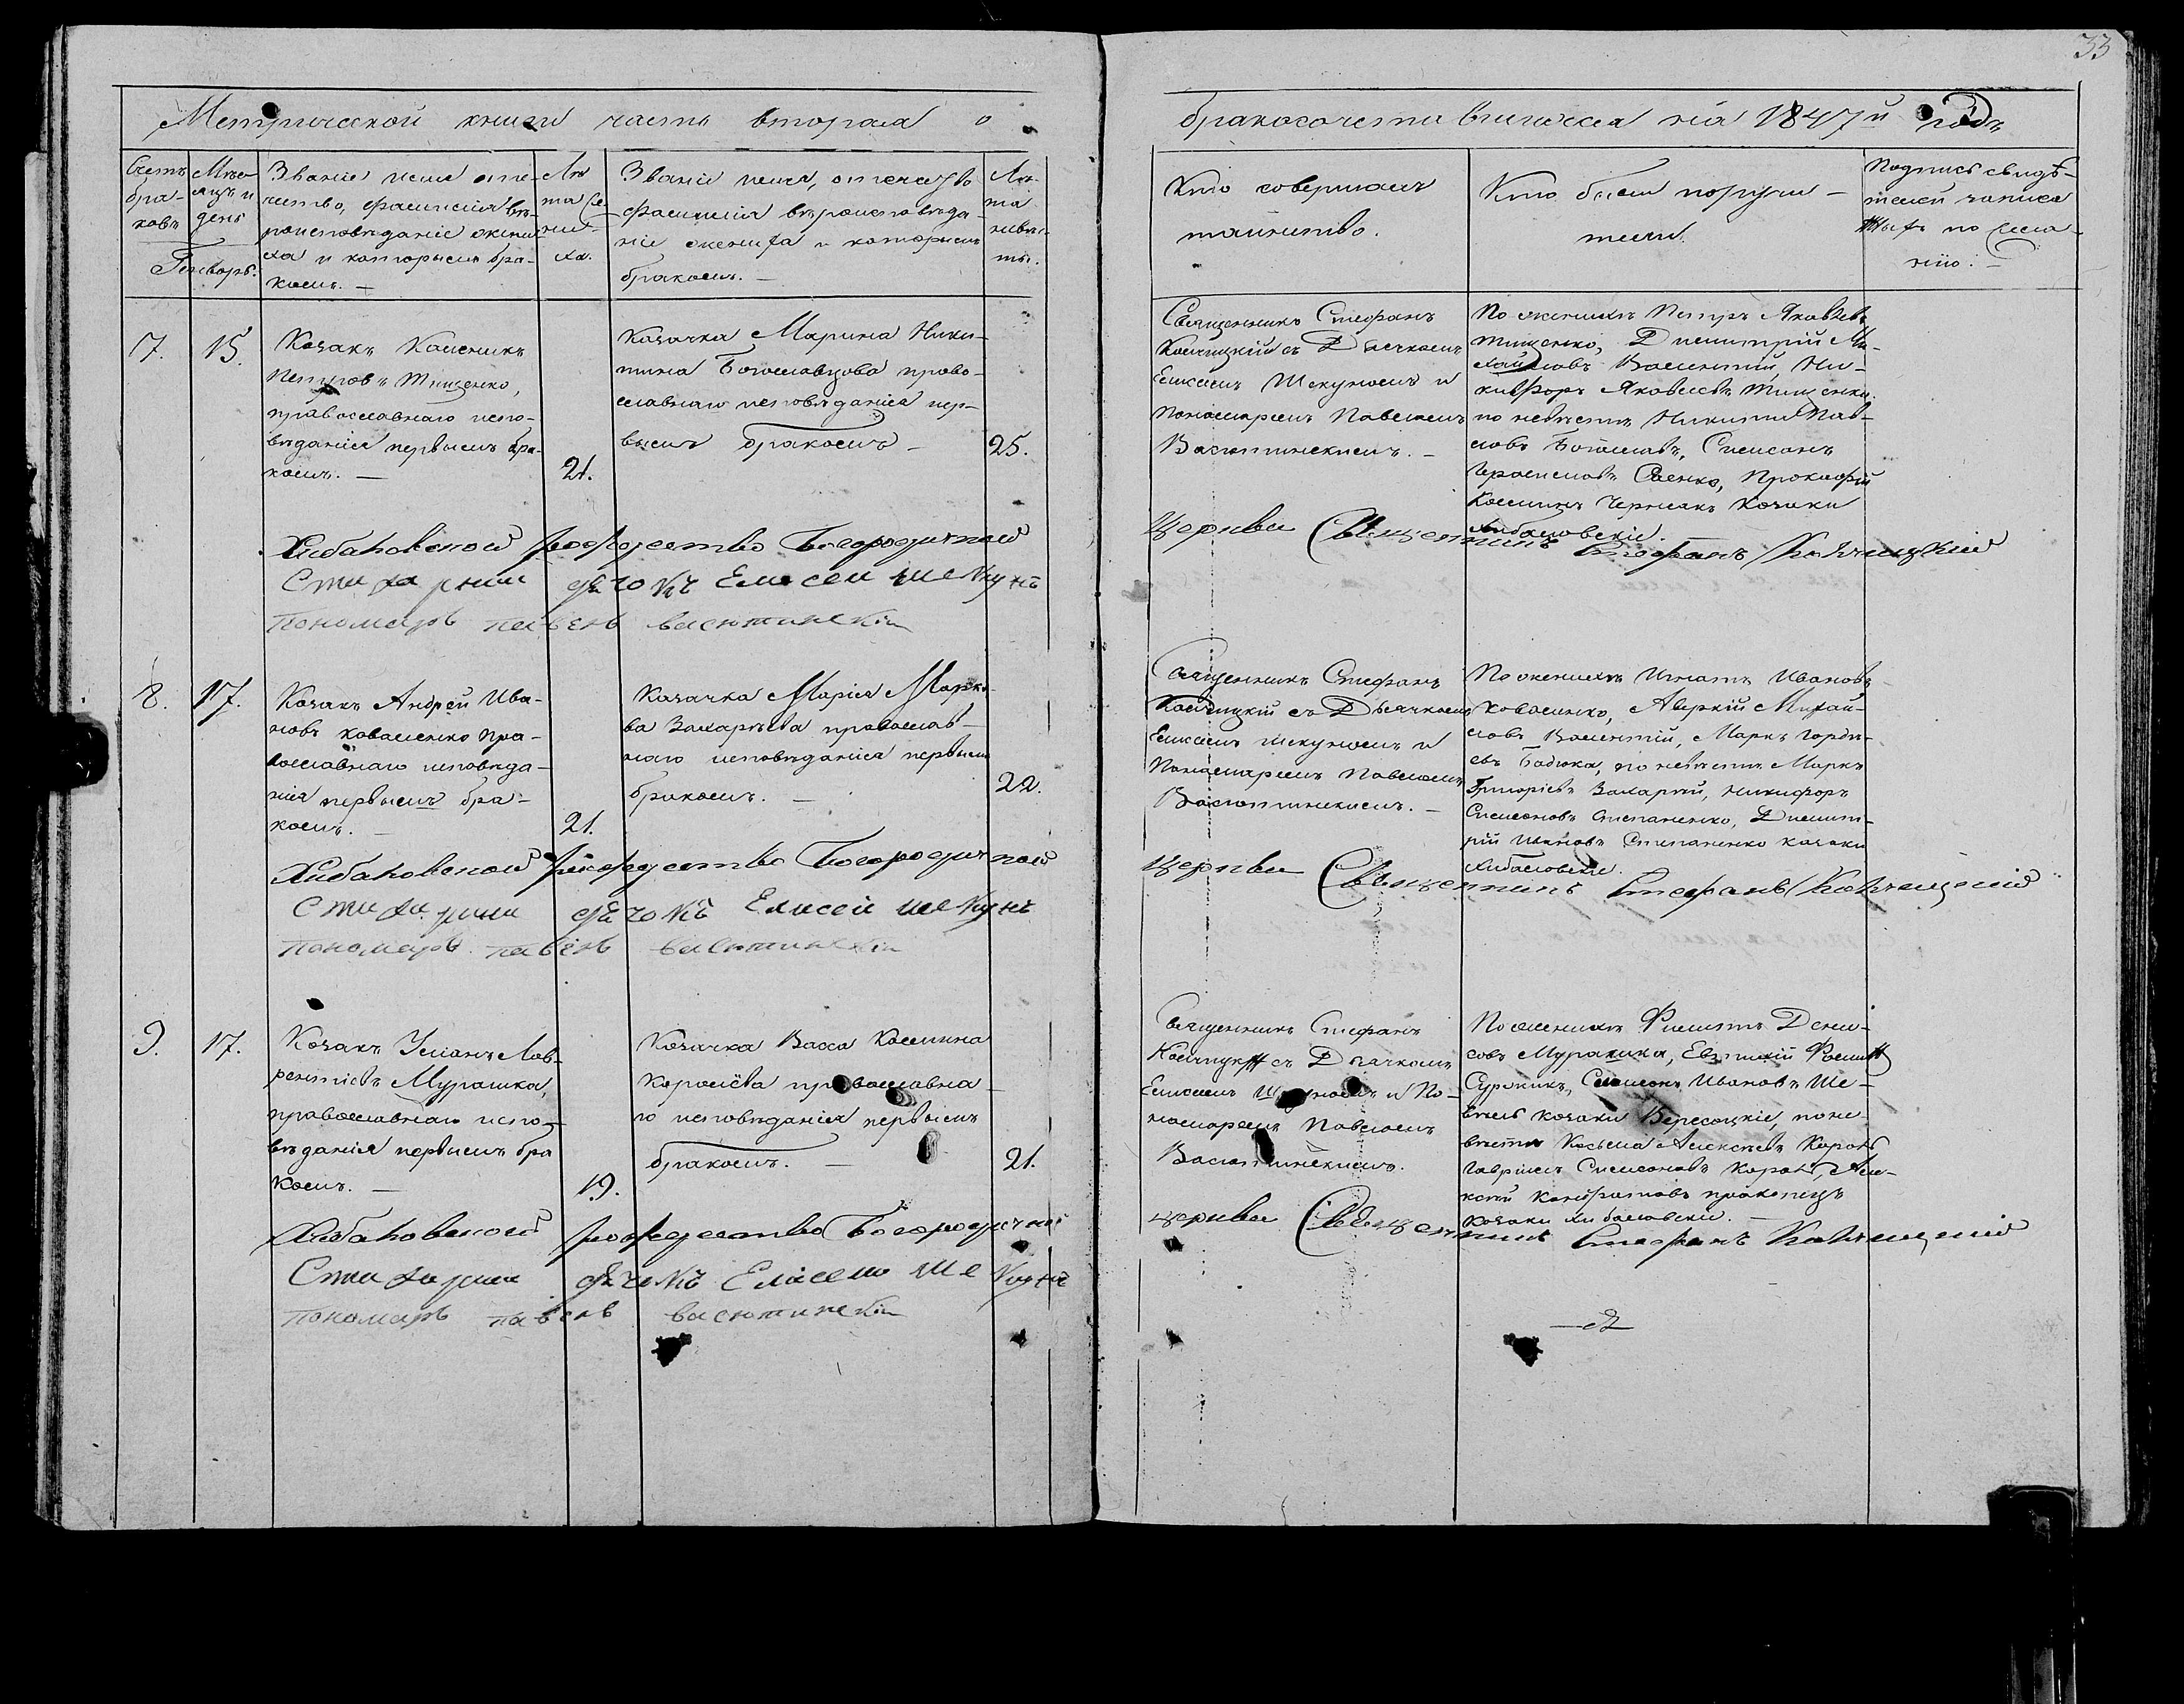 33
Метрической книги часть вторая о
бракосочетавшихся на 1847й годъ
Счетъ
бра-
ковъ
Мѣс-
яцъ и
день
Генварь.
Званіе имя оте-
чество, фамилія вѣ-
роисповѣданіе жени-
ха и которымъ бра-
комъ. —
Лѣ
та же
ни-
ха.
Званіе имя, отечество
фамилія вѣроисповѣда-
ніе жениха и которымъ
бракомъ. —
Лѣ-
та
невѣс-
ты.
Кто совершалъ
таинство.
Кто были поручи-
тели.
Подпись свидѣ-
телей записа
по жела-
нію: —
7.
15.
Козакъ Калиникъ
Петровъ Тищенко,
православнаго испо-
вѣданія первымъ бра-
комъ. —
21.
Козачка Марина Ники-
тина Богославцова право-
славнаго исповѣданія пер-
вымъ бракомъ —
25.
Священникъ Стефанъ
съ Дьячкомъ
Елисеемъ Шекуномъ и
Пономаремъ Павломъ
Васютинскимъ. —
По женихѣ Петръ Яковлевъ
Тищенко, Димитрій Ми-
хайловъ Валентій, Ни-
кифоръ Яковлевъ Тищенки
по невѣстѣ Никита Пав-
ловъ Симеонъ
Герасимовъ Саенко, Прокофій
Козминъ Чернякъ козаки
Хибаловскіе.
Хибаловской рождество Богородичной
церкви Священникъ Стефанъ
Стихарный дячокъ Елисей Шекунъ
пономаръ павелъ васютинскій
8.
17.
Козакъ Андрей Ива-
новъ Коваленко пра-
вославнаго исповѣда-
нія первымъ бра-
комъ. —
21.
Козачка Марія Марко-
ва Захарьева православ-
наго исповѣданія первымъ
бракомъ. —
22.
Священникъ Стефанъ
съ Дьячкомъ
Елисеемъ Шекуномъ и
Пономаремъ Павломъ
Васютинскимъ. —
По женихѣ Игнатъ Ивановъ
Коваленко, Аверкій Михай-
ловъ Валентій, Марко Гордѣ-
евъ Бадюка, по невѣстѣ Марко
Григорьевъ Захарчій, Никифоръ
Симеоновъ Степаненко, Димит-
рій Ивановъ Степаненко козаки
Хибаловскіе.
Хибаловской рождество Богородичной
церкви Священникъ Стефанъ
Стихарный дячокъ Елисей Шекунъ
пономаръ павелъ васютинскій
9.
17.
Козакъ Уліанъ Лав-
рентіевъ Мурашка,
православнаго испо-
вѣданія первымъ бра
комъ. —
19.
Козачка Васса Козмина
Королёва православна-
го исповѣданія первымъ
бракомъ. —
21.
Священникъ Стефанъ
съ Дьячкомъ
Елисеемъ Шекуномъ и По-
номаремъ Павломъ
Васютинскимъ.
По женихѣ Филиппъ Дени-
совъ Мурашка, Евтихій
Симеонъ Ивановъ Ше-
козаки Вересоцкіе, по не-
вѣстѣ Косьма Алексѣевъ Король
Гавріилъ Симеоновъ Король, Але-
ксѣй Кондратовъ
козаки Хибаловскіе. —
Хибаловской рождество Богородичной
церкви Священникъ Стефанъ
Стихарный дячокъ Елисей Шекунъ
пономаръ павелъ васютинскій